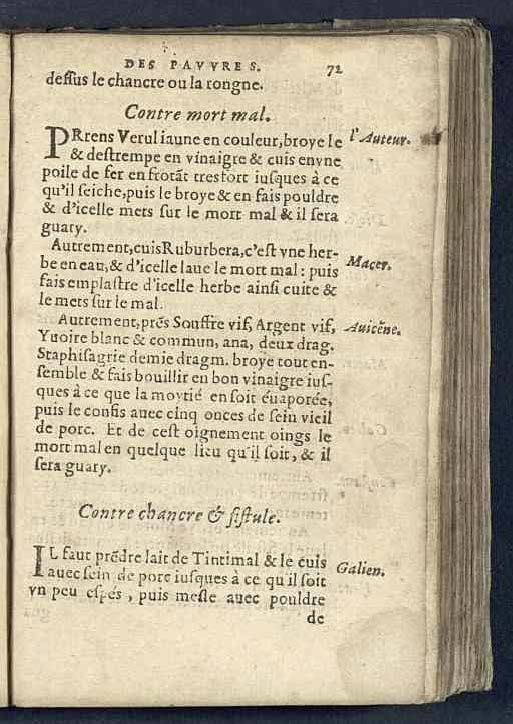 DES PAVVRES. 72
deſſus le chancre ou la rongne.
Contre mort mal.
PRrens Verul iaune en couleur, broye le l'Auteur.
& deſtrempe en vinaigre & cuis en vne
poile de fer en frotãt tresfort iuſques à ce
qu'il ſeiche, puis le broye & en fais pouldre
& d'icelle mets ſur le mort mal & il ſera
guary.
Autrement, cuis Ruburbera, c'eſt vne her-
be en eau, & d'icelle laue le mort mal : puis Macer.
fais emplaſtre d'icelle herbe ainſi cuite &
le mets ſur le mal.
Autrement, prẽs Souffre vif, Argent vif, Auicẽne.
Yuoire blanc & commun, ana, deux drag.
Staphiſagrie demie dragm. broye tout en-
ſemble & fais bouillir en bon vinaigre iuſ-
ques à ce que la moytié en ſoit éuaporée,
puis le confis auec cinq onces de ſein vieil
de porc. Et de ceſt oignement oings le
mort mal en quelque lieu qu'il ſoit, & il
ſera guary.
Contre chancre & fiſtule.
IL faut prẽdre lait de Tintimal & le cuis
auec ſein de porc iuſques à ce qu il ſoit Galien.
vn peu eſpés, puis meſle auec pouldre
de